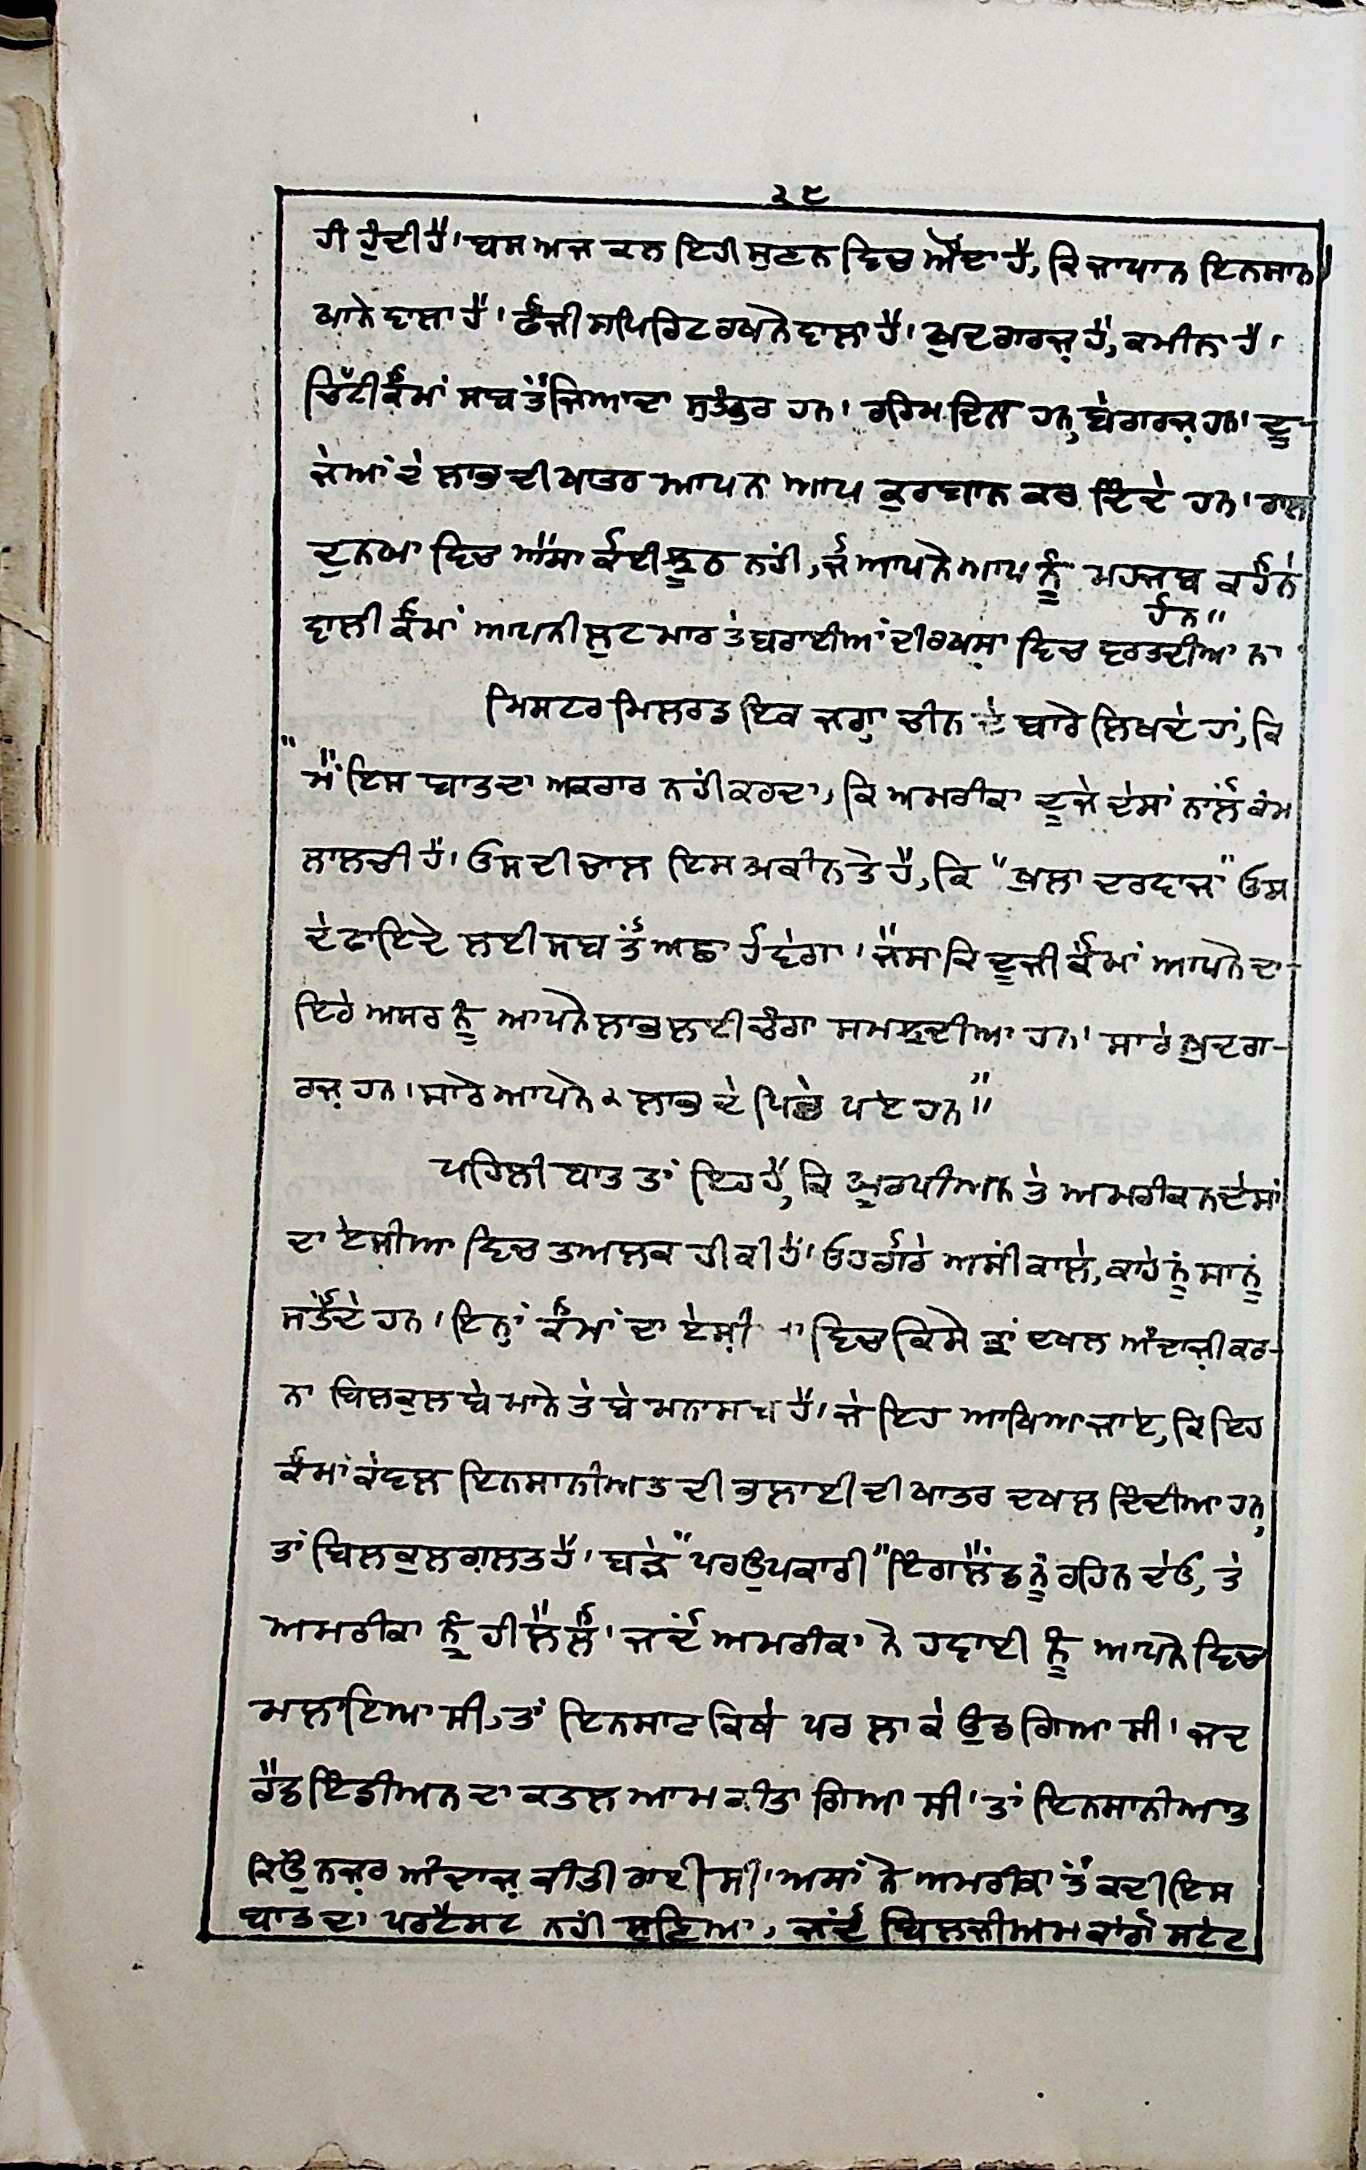 ੨੯
ਹੀ ਹੁੰਦੀ ਹੈ' ਬਸ ਅਜ ਕਲ ਇਹੀ ਸੁਣਨ ਵਿਚ ਔਂਦਾ ਹੈ, ਕਿ ਜਾਪਾਨ ਇਨਸਾਨ
ਖਾਨੇ ਵਾਲਾ ਹੈ' ਫੌਜੀ ਸਪਿਰਿਟ ਰਖਨੇ ਵਾਲਾ ਹੈ' ਖ਼ੁਦ ਗਰਜ਼ ਹੈ, ਕਮੀਨਾ ਹੈ'
ਚਿੱਟੀ ਕੌਮਾਂ ਸਬ ਤੋਂ ਜਿਆਦਾ ਸੁਤੰਤ੍ਰ ਹਨ' ਰਹਿਮ ਦਿਲ ਹਨ, ਬੇਗਰਜ਼ ਹਨ' ਦੂ-
ਜੇਆਂ ਦੇ ਲਾਭ ਦੀ ਖਾਤਰ ਆਪਨਾ ਆਪ ਕੁਰਬਾਨ ਕਰ ਦਿੰਦੇ ਹਨ'
ਦੁਨਯਾ ਵਿਚ ਐਸਾ ਕੋਈ ਝੂਠ ਨਹੀਂ, ਜੋ ਆਪਨੇ ਆਪ ਨੂੰ ਮਹਜ਼ਬ ਕਹੌਨੇ
ਹੋਨ"
ਵਾਲੀ ਕੌਮਾਂ ਆਪਨੀ ਲੁਟ ਮਾਰ ਤੇ ਬਰਾਈਆਂ ਦੀ ਰਖਸ਼ਾ ਵਿਚ ਵਰਤਦੀਆ ਨਾ
ਮਿਸਟਰ ਮਿਲਰਡ ਇਕ ਜਗ੍ਹਾ ਚੀਨ ਦੇ ਬਾਰੇ ਲਿਖਦੇ ਹਾਂ, ਕਿ
"ਮੈਂ ਇਸ ਬਾਤ ਦਾ ਅਕਰਾਰ ਨਹੀਂ ਕਰਦਾ, ਕਿ ਅਮਰੀਕਾ ਦੂਜੇ ਦੇਸਾਂ ਨਾਲੋਂ ਕੰਮ
ਲਾਲਚੀ ਹੈ' ਓਸ ਦੀ ਚਾਲ ਇਸ ਅਕੀਨ ਤੇ ਹੈ, ਕਿ "ਖੁਲਾ ਦਰਵਾਜ਼ਾ" ਓਸ
ਦੇ ਫਾਇਦੇ ਲਈ ਸਬ ਤੋਂ ਅਛਾ ਹੋਵੇਗਾ' ਜੈਸਾ ਕਿ ਦੂਜੀ ਕੌਮਾਂ ਆਪਨੇ ਦਾ-
ਇਰੇ ਅਸਰ ਨੂੰ ਆਪਨੇ ਲਾਭ ਲਈ ਚੰਗਾ ਸਮਝਦੀਆ ਹਨ' ਸਾਰੇ ਖ਼ੁਦਗ-
ਰਜ਼ ਹਨ' ਸਾਰੇ ਆਪਨੇ ੨ ਲਾਭ ਦੇ ਪਿਛੇ ਪਏ ਹਨ"
ਪਹਿਲੀ ਬਾਤ ਤਾਂ ਇਹ ਹੈ, ਕਿ ਯੂਰਪੀਅਨ ਤੇ ਅਮਰੀਕਨ ਦੇਸਾਂ
ਦਾ ਏਸ਼ੀਆ ਵਿਚ ਤਅਲਕ ਹੀ ਕੀ ਹੈ' ਓਹ ਗੋਰੇ ਅਸੀਂ ਕਾਲੇ, ਕਾਹੇ ਨੂੰ ਸਾਨੂੰ
ਸਤੌਂਦੇ ਹਨ' ਇਨ੍ਹਾਂ ਕੌਮਾਂ ਦਾ ਏਸ਼ੀਆ ਵਿਚ ਕਿਸੇ ਤ੍ਰਾਂ ਦਖਲ ਅੰਦਾਜ਼ੀ ਕਰ-
ਨਾ ਬਿਲਕੁਲ ਬੇ ਮਾਨੇ ਤੇ ਬੇ ਮਨਾਸਬ ਹੈ' ਜੇ ਇਹ ਆਖਿਆ ਜਾਏ, ਕਿ ਇਹ
ਕੌਮਾਂ ਕੇਵਲ ਇਨਸਾਨੀਅਤ ਦੀ ਭਲਾਈ ਦੀ ਖਾਤਰ ਦਖਲ ਦਿੰਦੀਆ ਹਨ,
ਤਾਂ ਬਿਲਕੁਲ ਗ਼ਲਤ ਹੈ' ਬੜੇ "ਪਰਉਪਕਾਰੀ" ਇੰਗਲੈਂਡ ਨੂੰ ਰਹਿਨ ਦੇਓ, ਤੇ
ਅਮਰੀਕਾ ਨੂੰ ਹੀ ਲੈ ਲੌ' ਜਦੋਂ ਅਮਰੀਕਾ ਨੇ ਹਵਾਈ ਨੂੰ ਆਪਨੇ ਵਿਚ
ਮਲਾਇਆ ਸੀ, ਤਾਂ ਇਨਸਾਫ ਕਿਥੇ ਪਰ ਲਾ ਕੇ ਉਡ ਗਿਆ ਸੀ' ਜਦ
ਰੈਡ ਇੰਡੀਅਨ ਦਾ ਕਤਲ ਆਮ ਕੀਤਾ ਗਿਆ ਸੀ' ਤਾਂ ਇਨਸਾਨੀਅਤ
ਕਿਉਂ ਨਜ਼ਰ ਅੰਦਾਜ਼ ਕੀਤੀ ਗਈ ਸੀ' ਅਸਾਂ ਨੇ ਅਮਰੀਕਾ ਤੋਂ ਕਦੀ ਇਸ
ਬਾਤ ਦਾ ਪਰਟੈਸਟ ਨਹੀਂ ਸੁਣਿਆ, ਜਦੋਂ ਬਿਲਜੀਅਮ ਕਾਂਗੋ ਸਟੇਟ